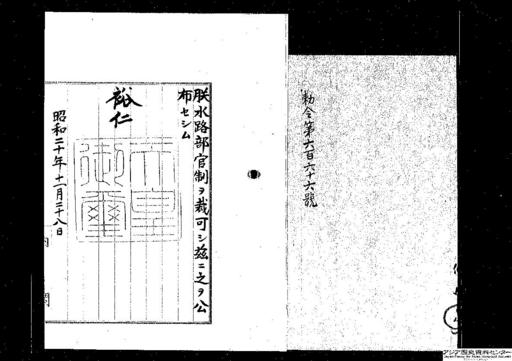 勅令第六百六十六號
朕水路部官制ヲ裁可シ茲ニ之ヲ公
布セシム
裕仁
天皇
御璽
昭和二十年十一月二十八日
内閣
アジア歴史資料センター